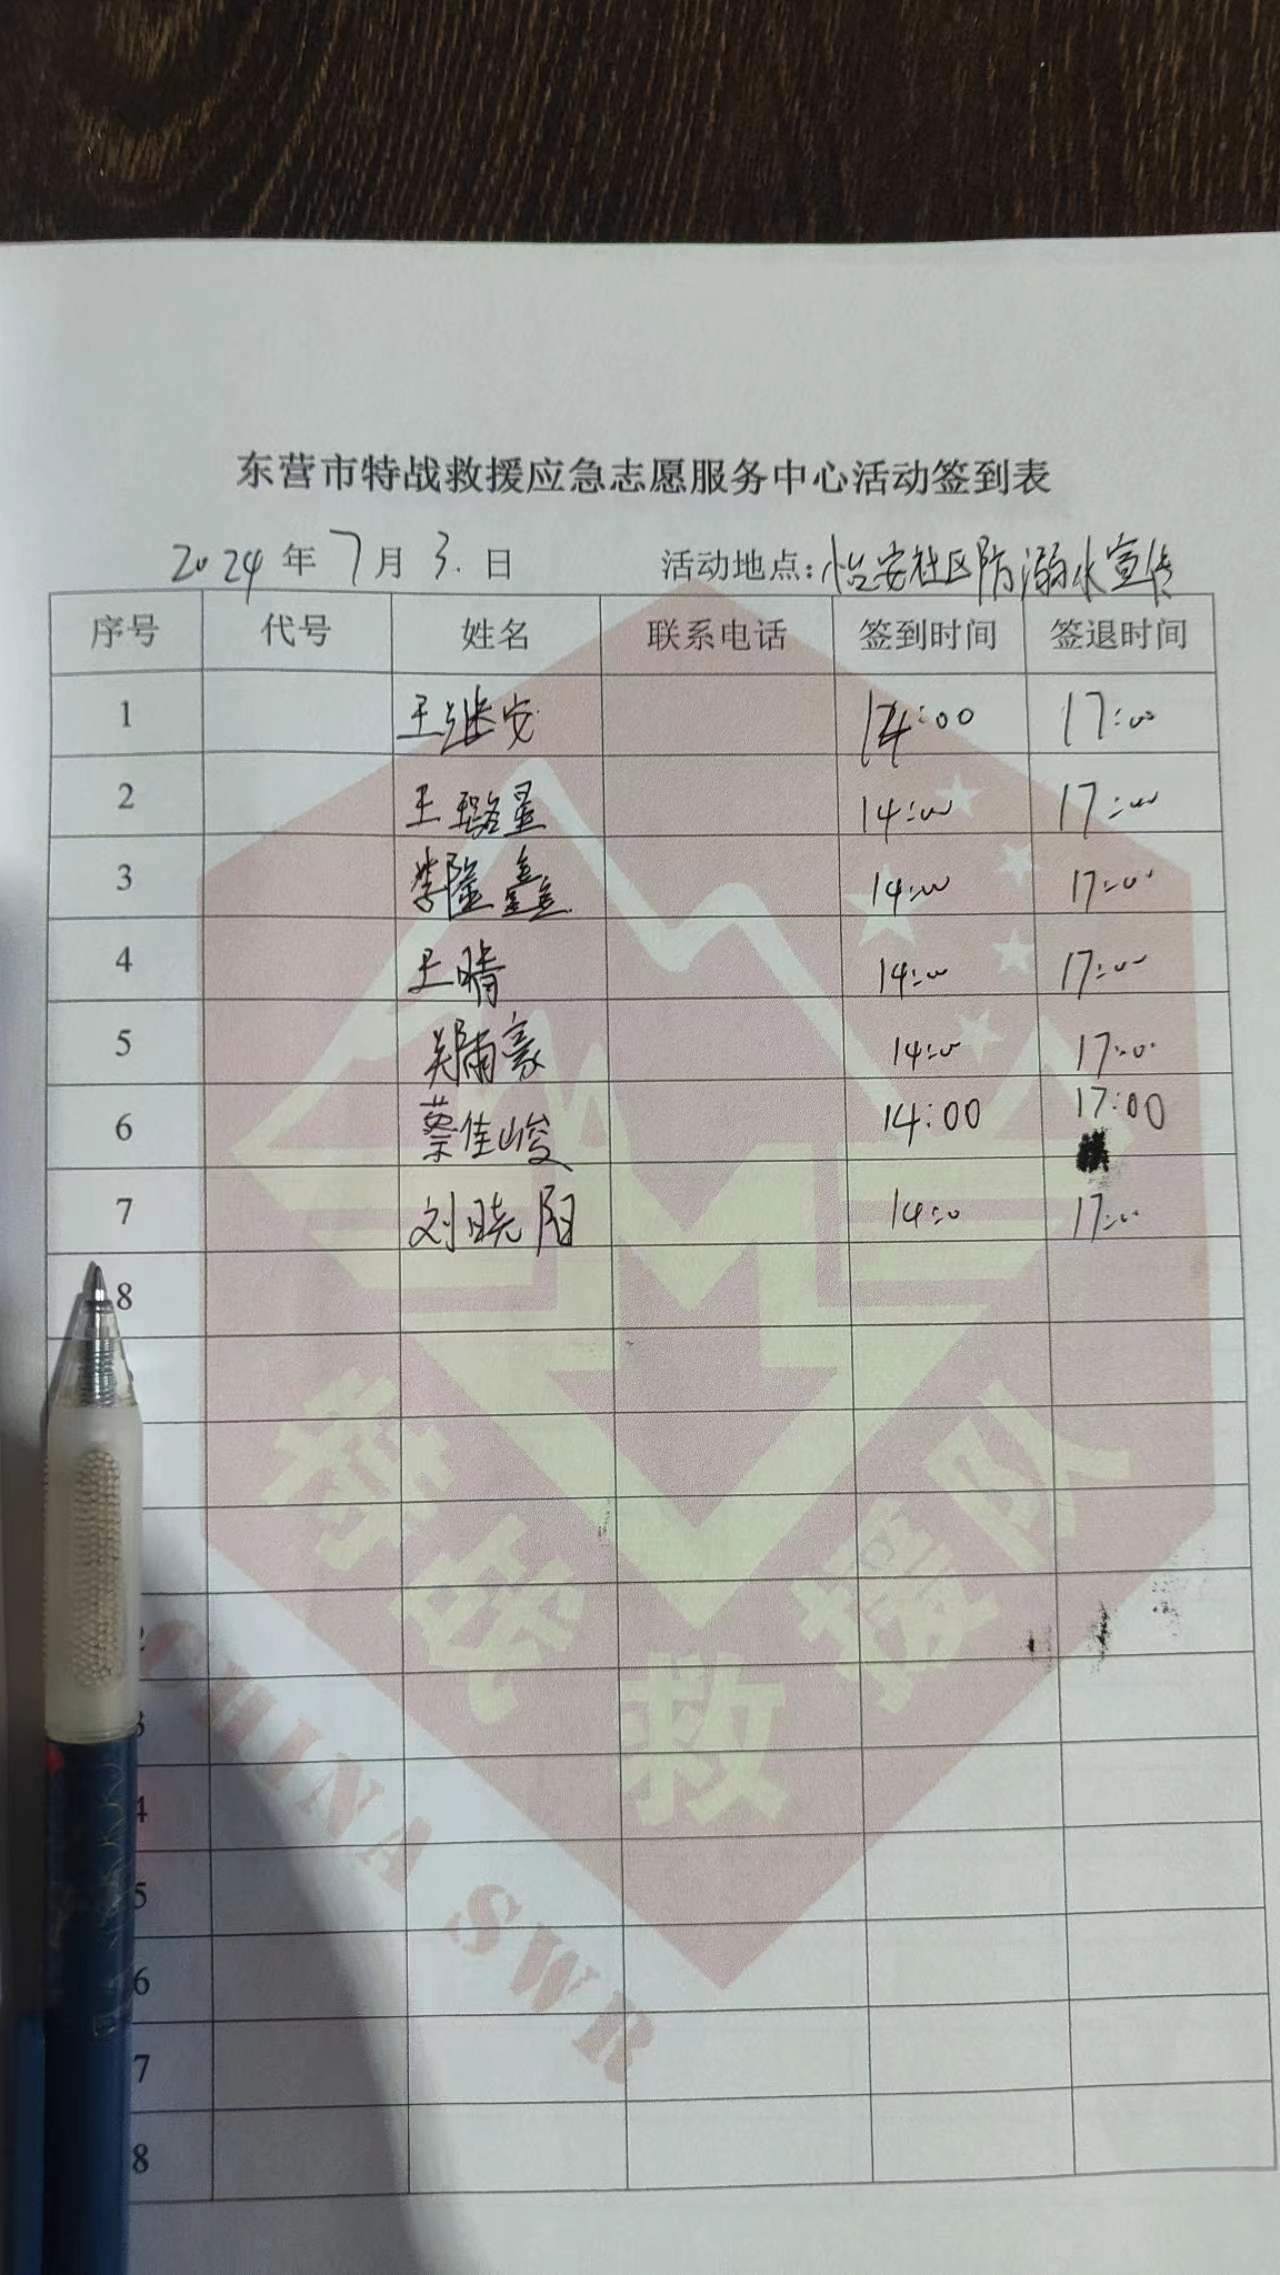 东营市特战救援应急志愿服务中心活动签到表
2024年 7月 3.日 活动地点:怡安社区防溺水宣传
序号 代号 姓名 联系电话 签到时间 签退时间
1 王继安 14:00 17:00
2 王璐星 14:00 17:00
3 李隆鑫 14:00 17:00
4 王晴 14:00 17:00
5 吴雨豪 14:00 17:00
6 蔡佳峻 14:00 17:00
7 刘晓阳 14:00 17:00
8
2
3
4
5
6
7
8
特战救援队
CHINA SWR